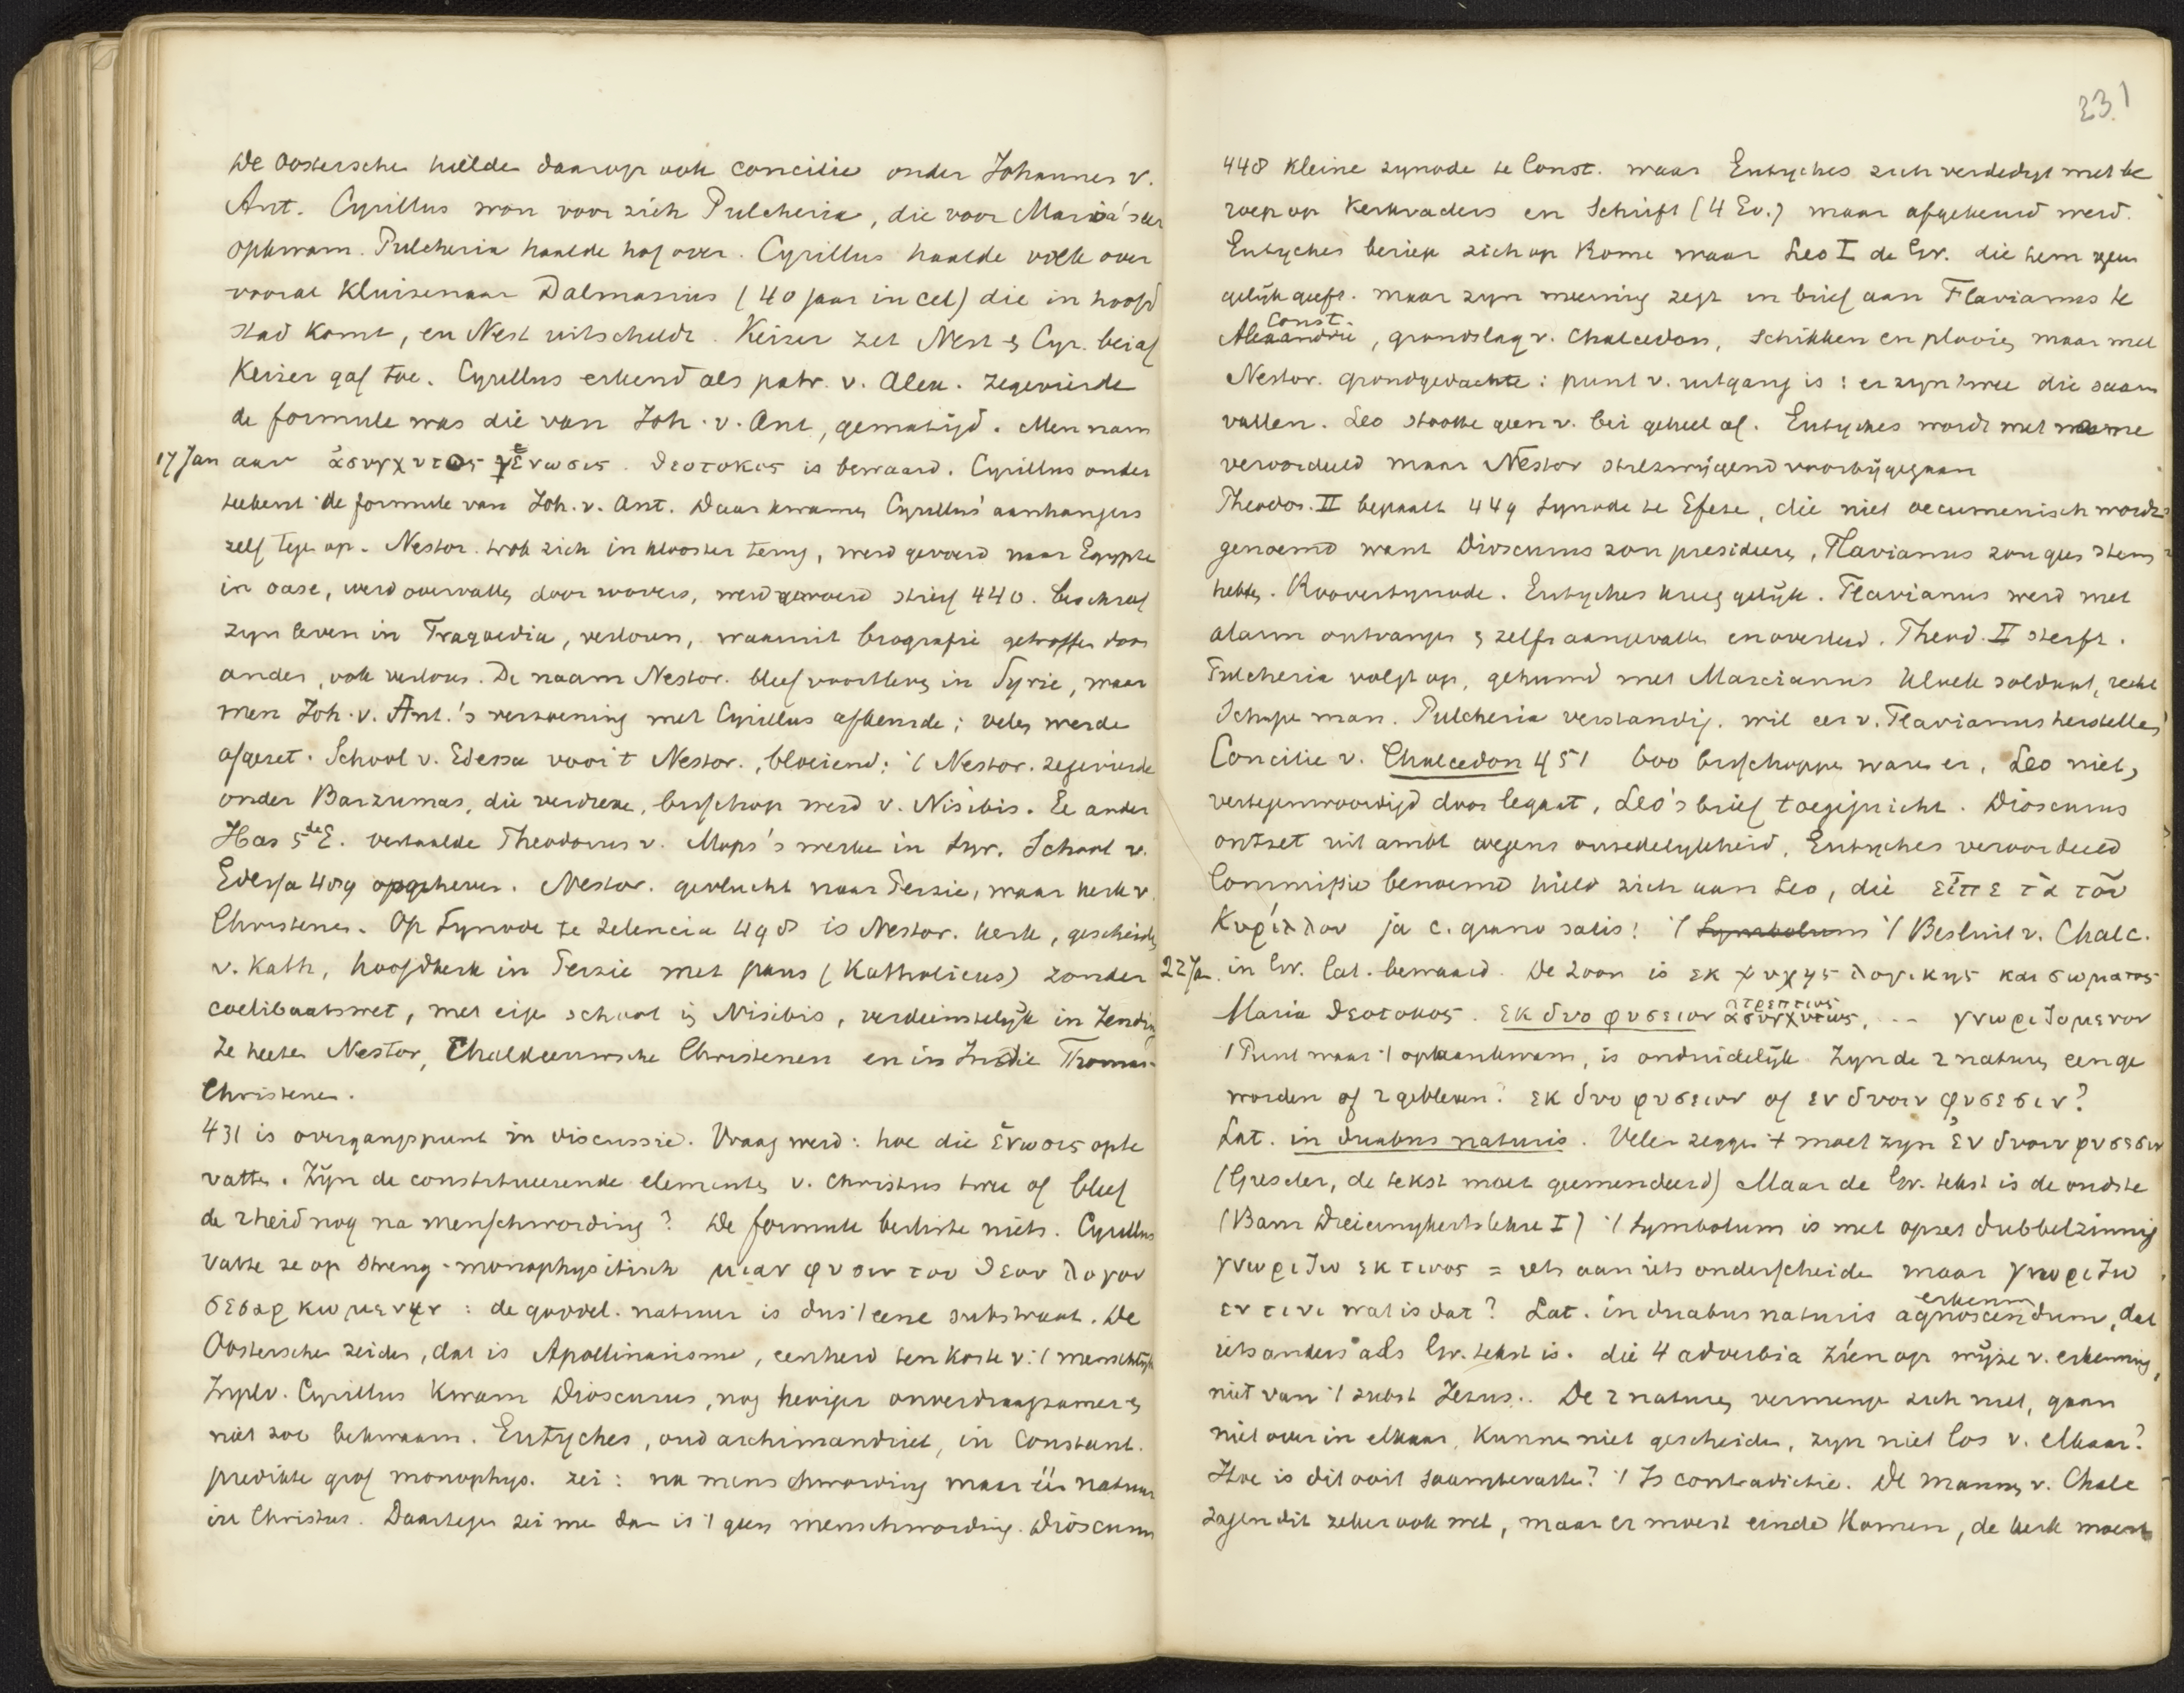 De Oostersche hielde daarop ook concilie onder Johannes v.
Ant. Cyrillus won voor zich Pulcheria, die voor Maria's eer
opkwam. Pulcheria haalde hof over. Cyrillus haalde volk over
vooral kluizenaar Dalmasius (40 jaar in cel) die in hoofd
stad komt, en Nest uitscheldt. Keizer zet Nest & Cyr. bei af
Keizer gaf toe. Cyrillus erkend als patr. v. Alex. zegevierde
de formule was die van Joh. v. Ant, gematigd. Men nam
17 Jan aan ἀσυγχυτος ἑνωσις. θεοτοκος is bewaard. Cyrillus onder
teekent de formule van Joh. v. Ant. Daar kwamen Cyrillus' aanhangers
zelf tegen op. Nestor. trok zich in klooster terug, werd gevoerd naar Egypte
in oase, werd overvallen door roovers, werd gevoerd stierf 440. beschreef
zyn leven in Tragoedia, verloren, waaruit biografie getroffen door
ander, ook verloren. De naam Nestor. bleef voortleven in Syrie, waar
men Joh. v. Ant.'s verzoening met Cyrillus afkeurde; velen werde
afgezet. School v. Edessa voor 't Nestor., bloeiend; 't Nestor. zegevierde
onder Barzumas, die verdreve, bisschop werd v. Nisibis. Ee ander
Has 5de E. vertaalde Theodorus v. Mops's werke in Syr. School v.
Edessa 489 opgeheven. Nestor. gevlucht naar Perzie, waar kerk v.
Christenen. Op Synode te Seleucia 498 is Nestor. kerk, gescheiden
v. Kath, hoofdkerk in Perzie met paus (Katholicus) zonder
coelibaatswet, met eigen school in Nisibis, verdienstelijk in Zending
Ze heeten Nestor, Chaldeeuwsche Christenen en in Indie Thomas-
Christenen.
431 is overgangspunt in discussie. Vraag werd: hoe die ἑνωσις opte
vatten. Zijn de constitueerende elementen v. Christus twee of bleef
de 2heid nog na menschwording? De formule besliste niets. Cyrillus
vatte ze op streng-monophysitisch μιαν φυσιν του θεου λογου
σεσαρκωμενην: de goddel. natuur is dus 't eene substraat. De
Oostersche zeiden, dat is Apollinarisme, eenheid ten koste v. 't menschelijk
In plv. Cyrillus kwam Dioscurus, nog heviger onverdraagzamer &
niet zoo bekwaam. Eutyches, oud archimandriet, in Constant.
predikte grof monophys. zei: na menschwording maar één natuur
in Christus. Daartegen zei me dan is 't geen menschwording. Dioscurus
231
448 kleine synode te Const. waar Eutyches zich verdedigt met be
roep op Kerkvaders en Schrift (4 Ev.) maar afgekeurd werd.
Eutyches beriep zich op Rome maar Leo I de Gr. die hem geen
gelijk geeft. maar zyn meening zegt in brief aan Flavianus te
Const.
Alexandrie, grondslag v. Chalcedon, schikken en plooien, maar met
Nestor. grondgedachte: punt v. uitgang is: er zyn twee die saam
vallen. Leo stootte geen v. bei geheel af. Eutyches wordt met name
veroordeeld maar Nestor stilzwijgend voorbijgegaan
Theodos. II bepaalt 449 Synode te Efeze, die niet oecumenisch wordt
genoemd want Dioscurus zou presideeren, Flavianus zou geen stem
hebben. Rooversynode. Eutyches kreeg gelijk. Flavianus werd met
alarm ontvangen & zelfs aangevallen en overleed. Theod. II sterft.
Pulcheria volgt op, gehuwd met Marcianus kloek soldaat, recht
schapen man. Pulcheria verstandig. wil eer v. Flavianus herstellen
Concilie v. Chalcedon 451 600 bisschoppen waren er, Leo niet,
vertegenwoordigd door legaat, Leo's brief toegejuicht. Dioscurus
ontzet uit ambt wegens onzedelykheid, Eutyches veroordeeld
Commissie benoemd hield zich aan Leo, die εἰπε τὰ τοῦ
Κυρίλλου ja c. grano salis! 't Symbolum 't Besluit v. Chalc.
22 Jan. in Gr. Lat. bewaard. De Zoon is εκ ψυχης λογικης και σωματος
Maria θεοτοκος. εκ δυο φυσεων ἀτρεπτως ἀσυγχυτως, -- γνωριζομενον
't Punt waar 't opaankwam, is onduidelijk. Zyn de 2 naturen een ge
worden of 2 gebleven? εκ δυο φυσεων of εν δυσιν φυσεσιν?
Lat. in duabus naturis. Velen zeggen 't moet zyn ἐν δυσιν φυσεσιν
(Gieseler, de tekst moet geemendeerd) Maar de Gr. tekst is de oudste
(Baur Dreieinykeitslehre I) 't Symbolum is met opzet dubbelzinnig
γνωριζω εκ τινος = iets aan iets onderscheide maar γνωριζω
εν τινι wat is dat? Lat. in duabus naturis agnoscendum, dat
erkenn
iets anders als Gr. tekst is. die 4 adverbia zien op wijze v. erkenning,
niet van 't subst Jezus.. De 2 naturen vermenge zich niet, gaan
niet over in elkaar, kunnen niet gescheiden, zyn niet los v. elkaar?
Hoe is dit ooit saamtevatten? 't Is contradictie. De mannen v. Chalc
zagen dit zeker ook wel, maar er moest einde komen, de kerk moest